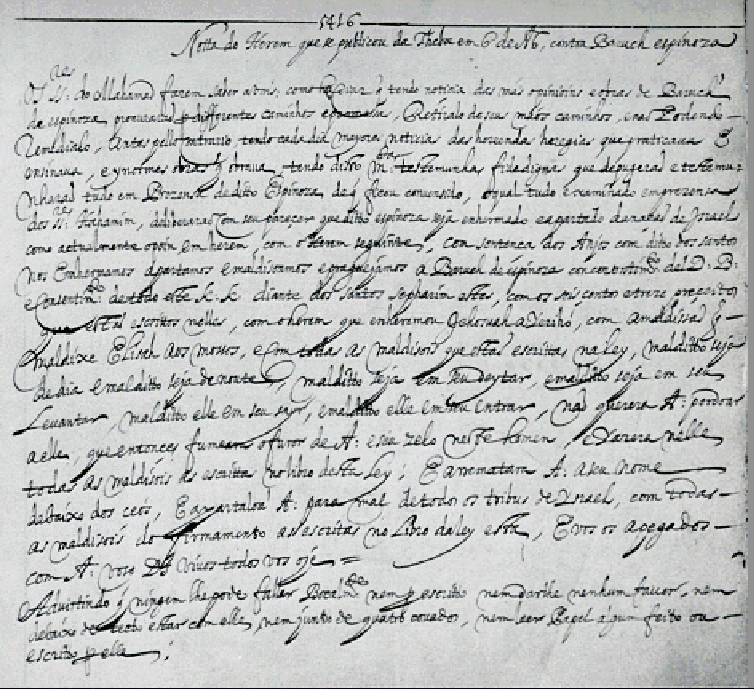 5416
Notta do Herem que se publicou da Theba em 6 de Ab, contra Baruch espinoza
Os SSres. do Mahamad fazem saber a vms, como ha dias q tendo noticia das mas opinioins e obras de Baruch
de espinoza procurarão p differentes caminhos e promessas, Retiralo de seus máos caminhos, e nao Podendo
Remedialo, antes pello contrario, tendo cada dia mayores noticias das horrendas heregias que praticava E
ensinava, e ynormes obras q obrava, tendo disto mtas testemunhas fidedignas que depugerão e testemu
nharaõ tudo em Prezensa de dito Espinoza, de q ficou convensido, o qual tudo examinado em prezensa
dos SSres. Hahamim, deliberaraõ com seu pareçer que dito espinoza seja enhermado e apartado da nação de Israel
como actualmente o poin em herem, com o Herem seguinte, Com sentença dos Anjos com dito dos santos
nos Enhermamos apartamos e maldisoamos e praguejamos a Baruch de espinoza com consentimto. del D. B.
e consentimto. de todo este K. K. diante dos santos sepharim estes, com os seis centos e treze preceitos
que estaõ escritos nelles, com o herem que enheremou Yehosuah a Yeriho, com a maldissaõ q
maldixe Elisah aos mossos, e com todas as maldisois que estaõ escritas na ley, malditto seja
de dia e malditto seja de noute, malditto seja em seu deytar, e malditto seja em seu
Levantar, malditto elle em seu sayr, e malditto elle em seu entrar, naõ querera A: perdoar
a elle, que entonces fumeara o furor de A: e seu zelo neste homem, e Yazera nelle
todas as maldisois as escrittas no libro desta ley; E arrematara A: a seu nome
debaixo dos ceos, E apartaloa A: para mal de todos os tribus de Israel, com todas
as maldisois do firmamento as escritas no Libro da ley esta, E vos os apegados
com A: voso D. vivos todos vos oje =
Advirtindo q ningem lhe pode falar Bocalmte. nem p escritto nem darlhe nenhum favor, nem
debaixo de tecto estar com elle, nem junto de quatro covados, nem leer Papel algum feito ou
escritto p elle;